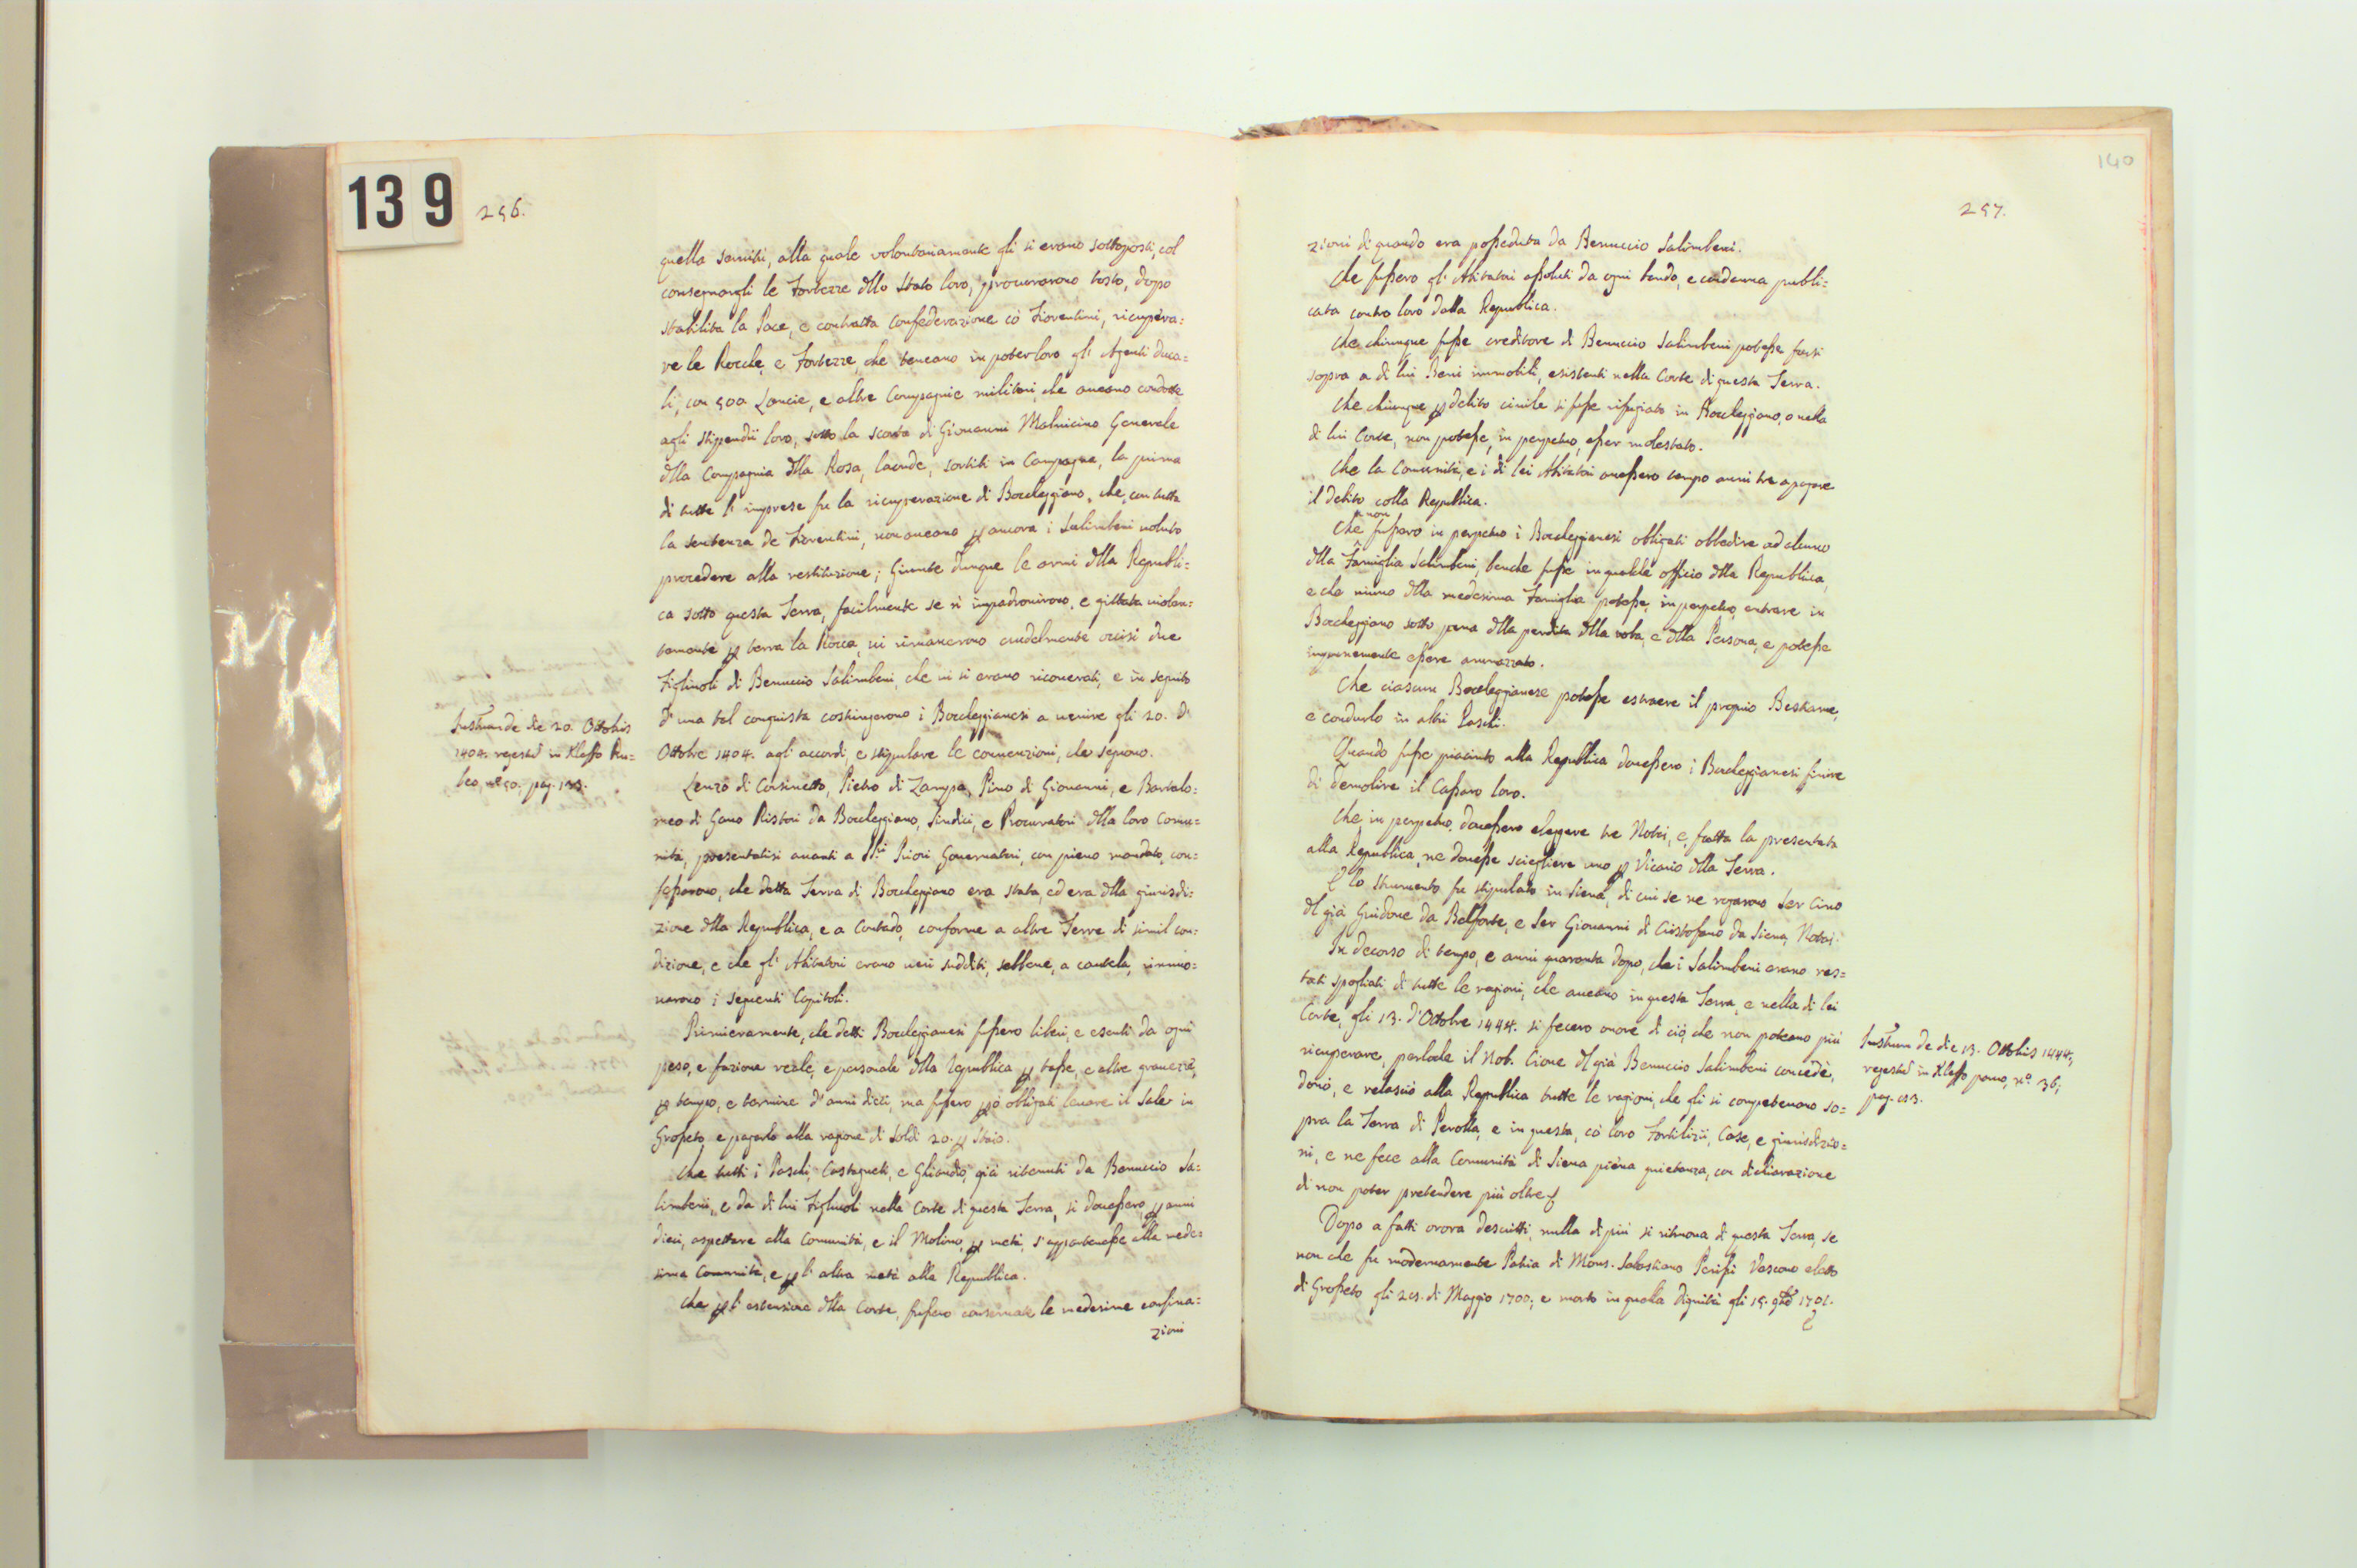 139
256.
quella servitù, alla quale volontariamente gli si erano sottoposti, col
consegnargli le Fortezze dllo Stato loro, procurarono tosto, dopo
stabilita la Pace, e contratta confederazione có Fiorentini, ricupera=
re le Rocche, e Fortezze, che teneano in poter loro gl' Agenti Duca=
li, con 500. Lancie, e altre Compagnie militari, che aueano condotte
agli stipendii loro, sotto la scorta di Giouanni Maluicino Generale
dlla Compagnia dlla Rosa, laonde, sortiti in Campagna, la prima
di tutte l' imprese fu la ricuperazione di Boccheggiano, che, con tutta
la sentenza de Fiorentini, non aueano p ancora i Salimbeni uoluto
procedere alla restituzione; Giunte dunque le armi dlla Republi=
ca sotto questa Terra, facilmente se n' impadronirono, e gittata uiolen=
temente p terra la Rocca, ui rimanerono crudelmente occisi due
Figliuoli di Benuccio Salimbeni, che iui si erano ricouerati, e in seguito
d' una tal conquista costringerono i Boccheggianesi a uenire gli 20. d'
Ottobre 1404. agli accordi, e stipulare le conuenzioni, che seguono.
Instrum de die 20. Ottobris
1404. regestd in Kleffo Ru=
beo, n° 50, pag. 123.
Lenzo di Corsinetto, Pietro di Zampa, Pino di Giouanni, e Bartalo=
meo di Gano Ristori da Boccheggiano, Sindici, e Procuratori dlla loro Comu=
nità, presentatisi auanti a Sri Priori Gouernatori, con pieno mandato, con=
fessarono, che detta Terra di Boccheggiano era stata, ed era dlla giurisdi=
zione dlla Republica, e a Contado, conforme a altre Terre di simil con=
dizione, e che gl' Abitatori erano ueri sudditi, sebbene, a cautela, rinnuo=
uarono i seguenti Capitoli.
Primieramente, che detti Boccheggianesi fussero liberi, e esenti da ogni
peso, e fazione reale, e personale dlla Republica p tasse, e altre grauezze,
p tempo, e termine d' anni dieci, ma fussero pò obligati leuare il Sale in
Grosseto, e pagarlo alla ragione di soldi 20. p Staio.
Che tutti i Paschi, Castagneti, e Ghiande, già ritenuti da Benuccio Sa=
limbeni, e da di lui Figliuoli nella Corte di questa Terra, si douessero, p anni
dieci, aspettare alla Comunità, e il Molino, p metà, s' appartenesse alla mede=
sima Comunità, e p l' altra metà alla Republica.
Che p l' estensione dlla Corte, fussero conseruate le medesime confina=
zioni
140
257.
zioni di quando era posseduta da Benuccio Salimbeni.
Che fussero gl' Abitatori assoluti da ogni bando, e condanna publi=
cata contro loro dalla Republica.
Che chiunque fusse creditore di Benuccio Salimbeni potesse farsi
sopra a di lui Beni immobili, esistenti nella Corte di questa Terra.
Che chiunque p debito ciuile si fusse rifugiato in Boccheggiano, o nella
di lui Corte, non potesse, in perpetuo, esser molestato.
Che la Comunità, e i di lei Abitatori auessero tempo anni tre a pagare
il debito colla Republica.
non
Che fussero in perpetuo i Boccheggianesi obbligati obbedire ad alcuno
dlla Famiglia Salimbeni, benche fusse in qualche officio dlla Republica,
e che niuno dlla medesima Famiglia potesse, in perpetuo, entrare in
Boccheggiano sotto pena dlla perdita dlla roba, e dlla Persona, e potesse
impunemente essere ammazzato.
Che ciascun Boccheggianese potesse estraere il proprio Bestiame,
e condurlo in altri Paschi.
Quando fusse piaciuto alla Republica douessero i Boccheggianesi finire
di demolire il Cassaro loro.
Che in perpetuo, douessero eleggere tre Nobili, e, fatta la presentata
alla Republica, ne douesse sciegliere uno p Vicario dlla Terra.
E lo strumento fu stipulato in Siena, di cui se ne rogarono Ser Cino
dl già Guidone da Belforte, e Ser Giouanni di Cristofano da Siena, Notari.
In decorso di tempo, e anni quaranta dopo, che i Salimbeni erano res=
tati spogliati di tutte le ragioni, che aueano in questa Terra, e nella di lei
Corte, gli 13. d' Ottobre 1444. si fecero onore di ciò, che non poteano più
ricuperare, perloche il Nob. Cione dl già Benuccio Salimbeni concedè,
donò, e relasciò alla Republica tutte le ragioni, che gli si competeuano so=
pra la Terra di Perolla, e in questa, có loro Fortilizii, Case, e giurisdizio=
ni, e ne fece alla Comunità di Siena piena quietanza, con dichiarazione
di non poter pretendere più oltre.
Instrum de die 13. Ottobris 1444,
regestd in Kleffo pomo, n°. 36,
pag. 23.
Dopo a fatti orora descritti, nulla di più si ritroua di questa Terra, se
non che fu modernamente Patria di Mons. Sebastiano Perissi Vescouo eletto
di Grosseto gli 25. di Maggio 1700; e morto in quella dignità gli 15. 1701.